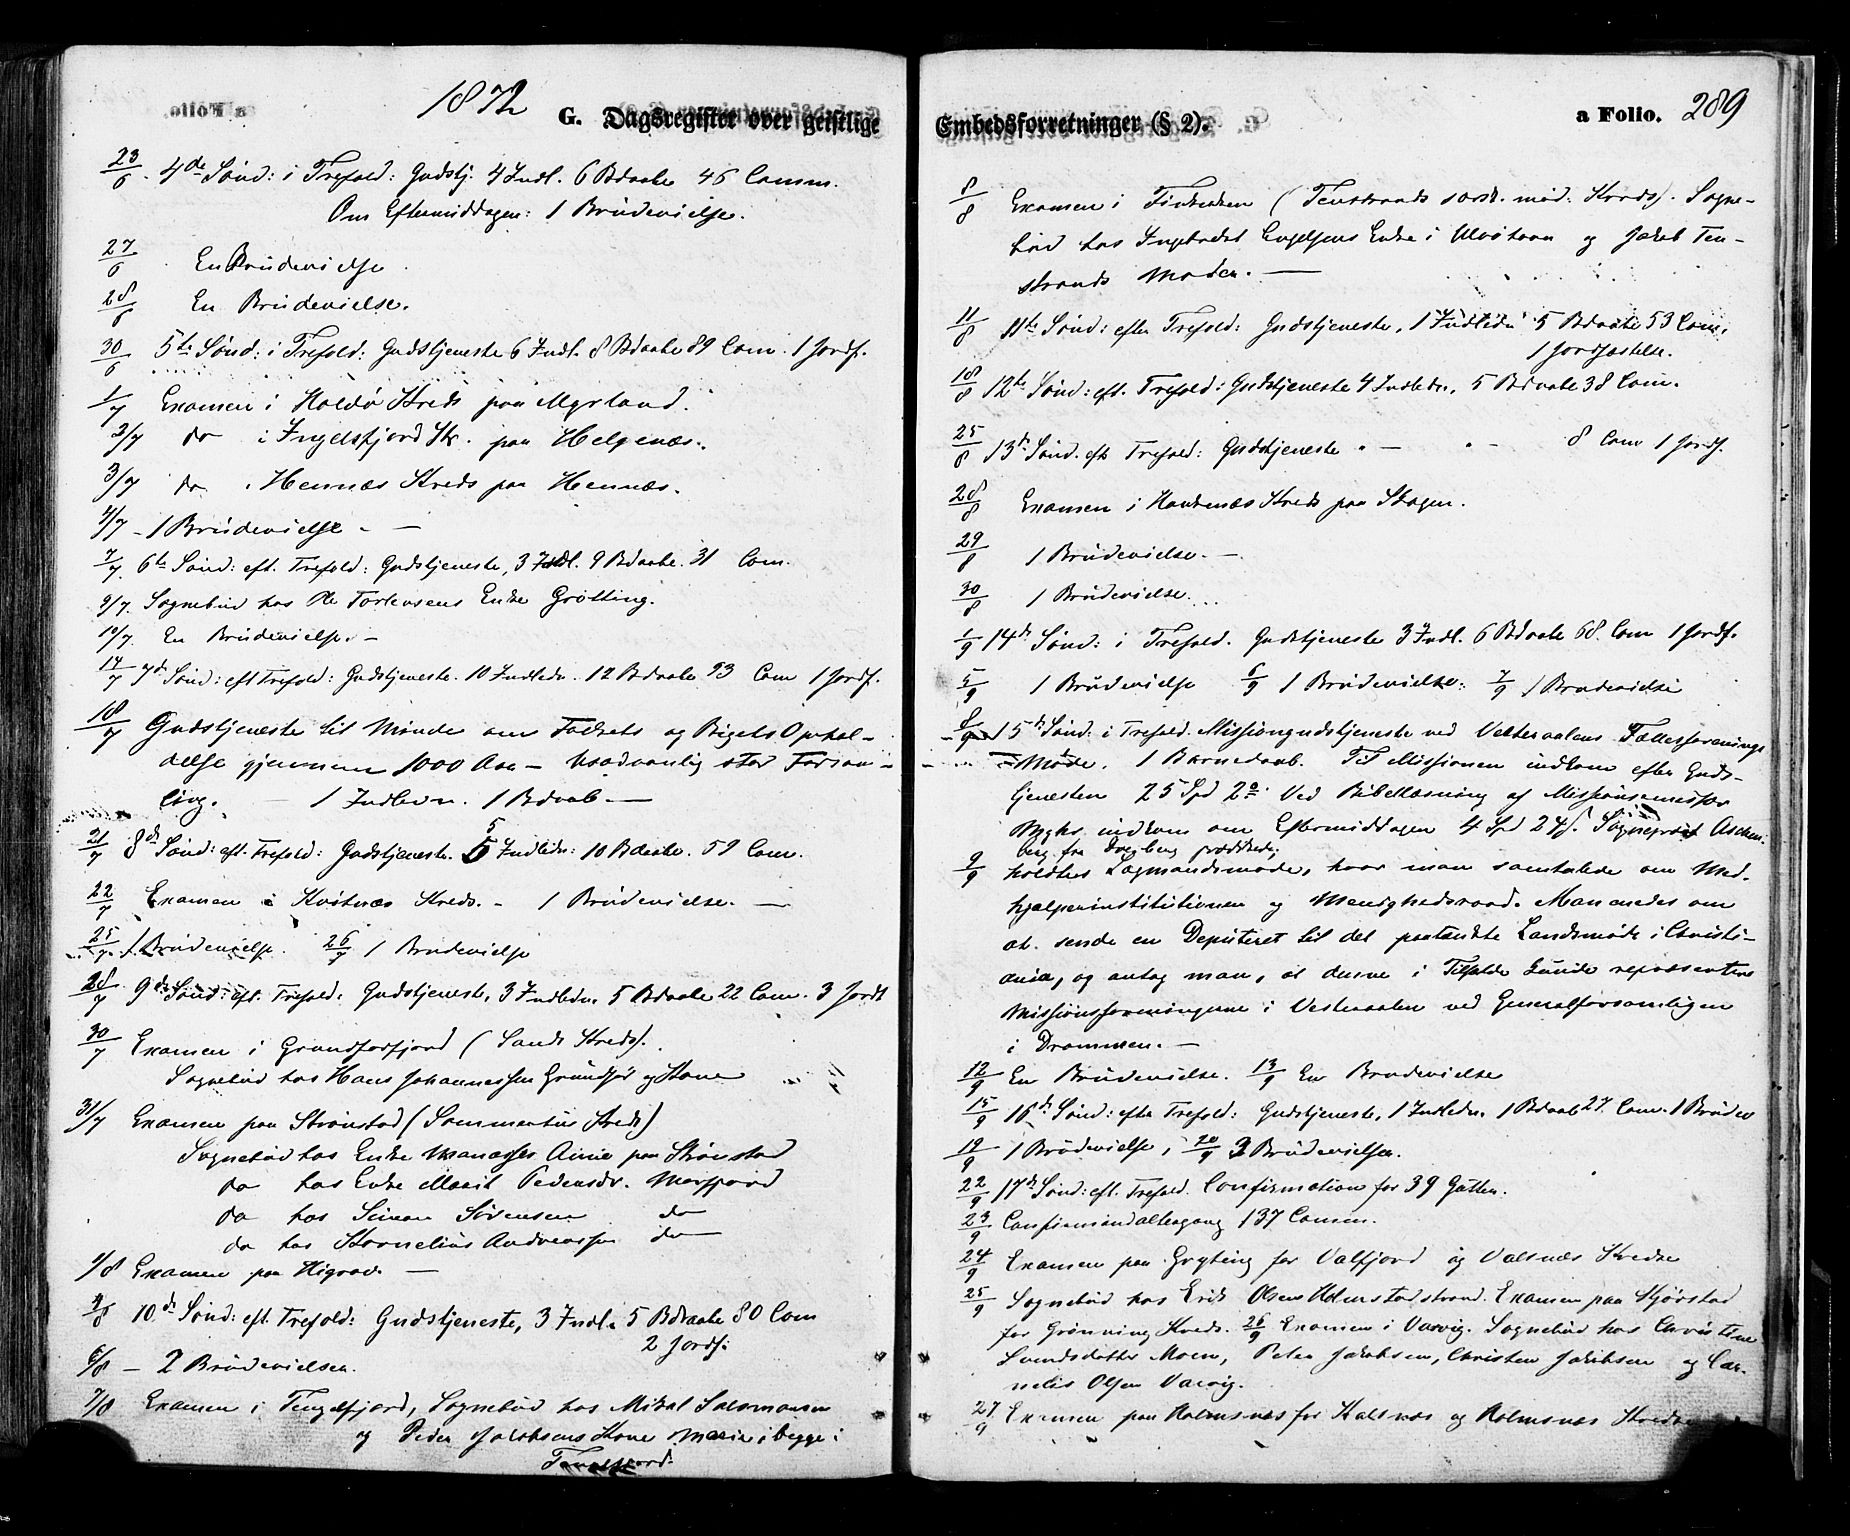 1872 G. Dagsregister over geistlige
23/6 4de Sønd: i Trefold: Gudstj. 4 Indl. 6 Bdaabte 46 Comm.
Om Eftermiddagen: 1 Brudevielse.
27/6 En Brudevielse.
28/6 En Brudevielse.
30/6 5te Sønd: i Trefold: Gudstjeneste 6 Indl. 8 Bdaabte 89 Com. 1 Jordf.
1/7 Examen i Haldø Kreds paa Myrland.
2/7 do i Ingelsfjord Kr. paa Helgenæs.
3/7 do i Hennæs Kreds paa Hennæs.
4/7 - 1 Brudevielse -
7/7 6te Sønd: eft. Trefold: Gudstjeneste, 3 Indl. 9 Bdaabte. 31 Com.
9/7. Sognebud hos Ole Torlensens Enke Grøtting.
10/7. En Brudevielse. -
14/7 7de Sønd: eft Trefold: Gudstjeneste. 10 Indledn. 12 Bdaabte 93 Com 1 Jordf.
18/7 Gudstjeneste til Minde om Folkets og Rigets Ophol-
delse gjennem 1000 Aar - usædvanlig stor Forsam-
ling. - 1 Indledn. 1 Bdaab -
21/7 8de Sønd: eft. Trefold: Gudstjeneste. 5 Indledn: 10 Bdaabte. 59 Com.
22/7 Examen i Kvitnæs Kreds. - 1 Brudevielse. -
25/7 1 Brudevielse. 26/7 1 Brudevielse
28/7 9de Sønd: eft. Trefold: Gudstjeneste, 3 Indledn. 5 Bdaabte 22 Com. 3 Jordf
30/7 Examen i Grundforfjord (Sands Kreds).
Sognebud hos Hans Johannessen Grundfør og Kone
31/7 Examen paa Strønstad (Sommerhus Kreds)
Sognebud hos Enke Manasses Anne paa Strønstad
do hos Enke Marit Pedersdr. Morfjord
do hos Simon Sørensen do
do hos Kornelius Andreassen do
1/8 Examen paa Higrav. -
4/8 10de Sønd: eft. Trefold: Gudstjeneste, 3 Indl. 5 Bdaabte 80 Com
2 Jordf.
6/8 - 2 Brudevielser.
7/8 Examen i Tengelfjord, Sognebud hos Mikal Salomonsen
og Peder Jakobsens Kone Maria i begge i
Tengelfjord.
Embedsforretninger (§ 2). a Folio. 289
8/8 Examen i Fiskeøen (Tenstrands Kreds). Sogne-
bud hos Ingebrigt Engelsens Enke i Ulvøhavn og Jakob Ten-
strands Moder. -
11/8 11te Sønd: efter Trefold: Gudstjeneste, 1 Indledn 5 Bdaabte 53 Com.
1 Jordfæstelse.
18/8 12te Sønd: eft. Trefold: Gudstjeneste 4 Indledn. 5 Bdaabte 38 Com.
25/8 13de Sønd. eft Trefold: Gudstjeneste " - " - 8 Com 1 Jordf.
28/8 Examen i Hauknæs Kreds paa Skagen.
29/8 1 Brudevielse. -
30/8 1 Brudevielse.
1/9 14de Sønd: i Trefold. Gudstjeneste 3 Indl. 6 Bdaabte 68 Com 1 Jordf.
5/9 1 Brudevielse 6/9 1 Brudevielse: 7/9 1 Brudevielse
8/9 15de Sønd: i Trefold. Missionsgudstjeneste ved Vesteraalens Fællesforenings
Møde. 1 Barnedaab. Til Missionen indkom efter Guds-
tjenesten 25 Spd Ved Bibellæsning af Missionsemissær
indkom om Eftermiddagen 4 Spd 24 s. Sogneprest Aschen-
berg fra Dverberg prædikede;
9/9 holdtes Lægmandsmøde, hvor man samtalede om Med-
hjælperinstitutionen og Menighedsraad. Man enedes om
at sende en Deputeret til det paatænkte Landsmøde i Christi-
ania, og antog man, at denne i Tilfælde kunde repræsentere
Missionsforeningerne i Vesteraalen ved Generalforsamlingen
i Drammen. -
12/9 En Brudevielse. 13/9 En Brudevielse
15/9 16de Sønd: efter Trefold: Gudstjeneste, 1 Indledn. 1 Bdaab 27 Com. 1 Brudev
19/9 1 Brudevielse, 20/9 2 Brudevielser.
22/9 17de Sønd: eft. Trefold. Confirmation for 39 Gutter.
23/9 Confirmandaltergang 137 Comm.
24/9 Examen paa Gryting for Valfjord og Valsnæs Kredse
25/9 Sognebud hos Erik Olsen Holmstadstrand. Examen paa Kjørstad
for Grønning Kreds. 26/9 Examen i Vasvig. Sognebud hos Christine
Svendsdatter Moen, Peter Jakobsen, Christen Jakobsen og Cor-
nelis Olsen Vasvig.
27/9 Examen paa Holmsnæs for Kalsnæs og Holmsnæs Kredse